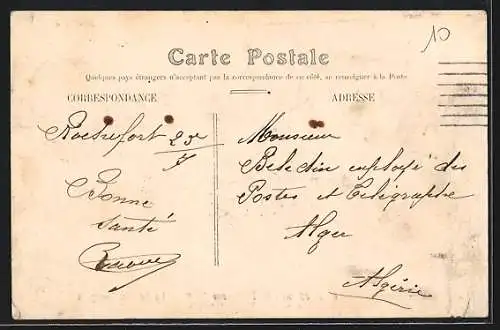 10
Carte Postale
Quelques pays étrangers n'acceptant pas la correspondance de ce côté, se renseigner à la Poste
CORRESPONDANCE
ADRESSE
Rochefort 25
7
Bonne
santé
Monsieur
employé des
Postes et Télégraphe
Alger
Algérie